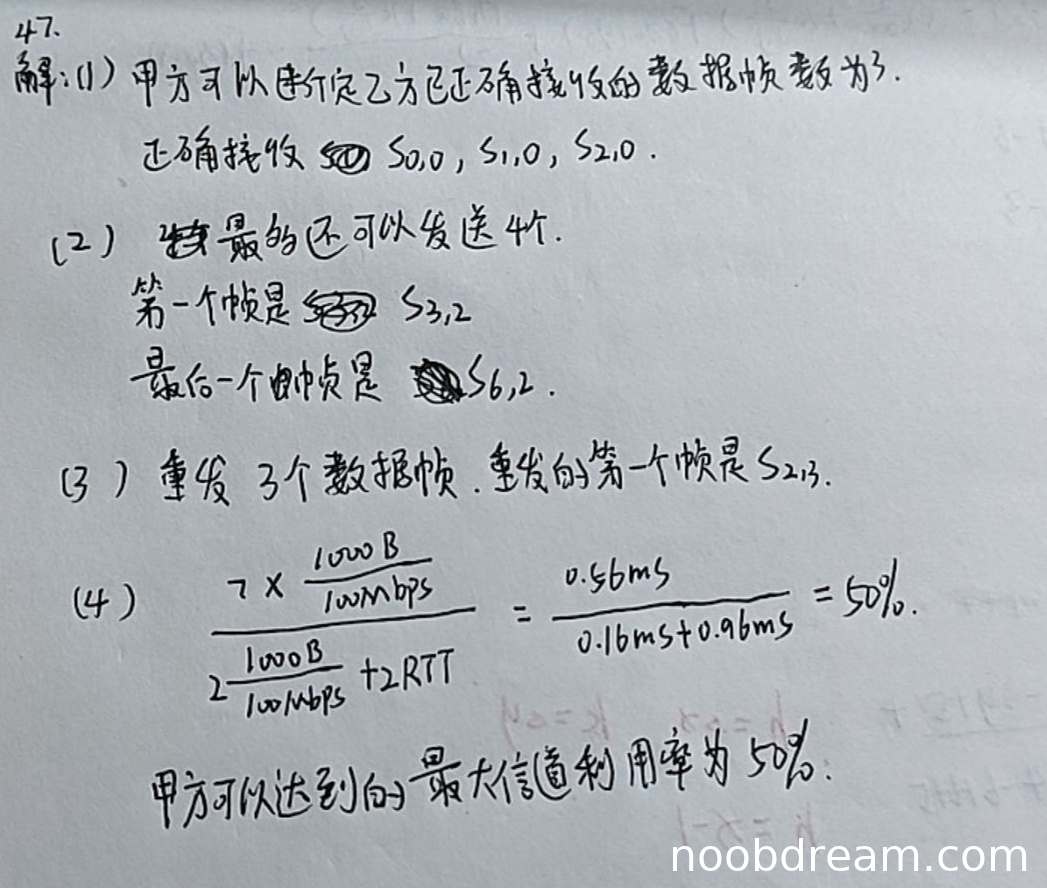 47.
解:(1) 甲方可以确定乙方已正确接收的数据帧数为3.
正确接收 S0,0, S1,0, S2,0.
(2) 最多还可以发送4个.
第一个帧是 S3,2
最后一个帧是 S6,2.
(3) 重发 3个数据帧. 重发的第一个帧是S2,3.
(4) 7 × 1000B/100Mbps / (2 1000B/100Mbps + 2RTT) = 0.56ms / (0.16ms+0.96ms) = 50%.
甲方可以达到的最大信道利用率为 50%.
noobdream.com